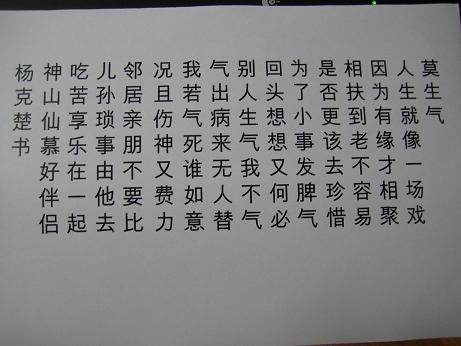 莫生气
人生就像一场戏
因为有缘才相聚
相扶到老不容易
是否更该去珍惜
为了小事发脾气
回头想想又何必
别人生气我不气
气出病来无人替
我若气死谁如意
况且伤神又费力
邻居亲朋不要比
儿孙琐事由他去
吃苦享乐在一起
神山仙慕好伴侣
杨克楚书